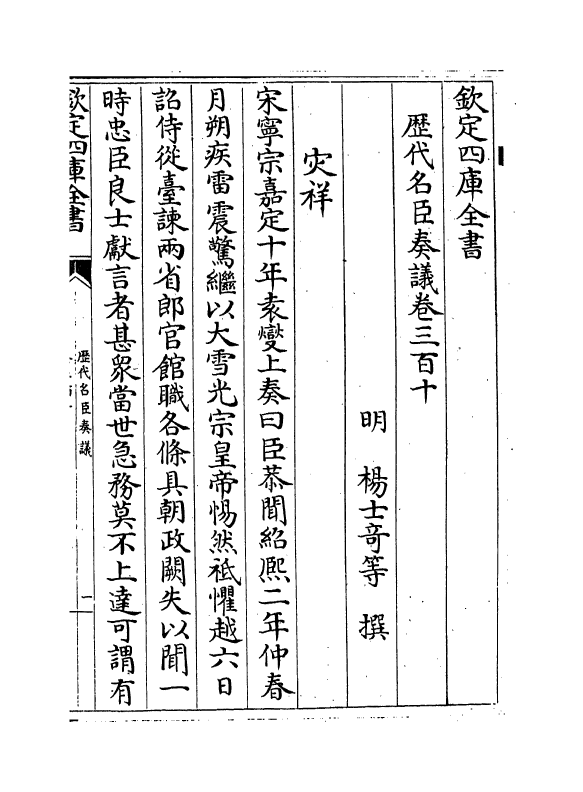 欽定四庫全書
歴代名臣奏議卷三百十
明 楊士竒等 撰
灾祥
宋寧宗嘉定十年袁燮上奏曰臣恭聞紹熈二年仲春
月朔疾雷震驚繼以大雪光宗皇帝惕然祗懼越六日
詔侍從臺諫兩省郎官館職各條具朝政闕失以聞一
時忠臣良士獻言者甚衆當世急務莫不上達可謂有
欽定四庫全書
歴代名臣奏議
一